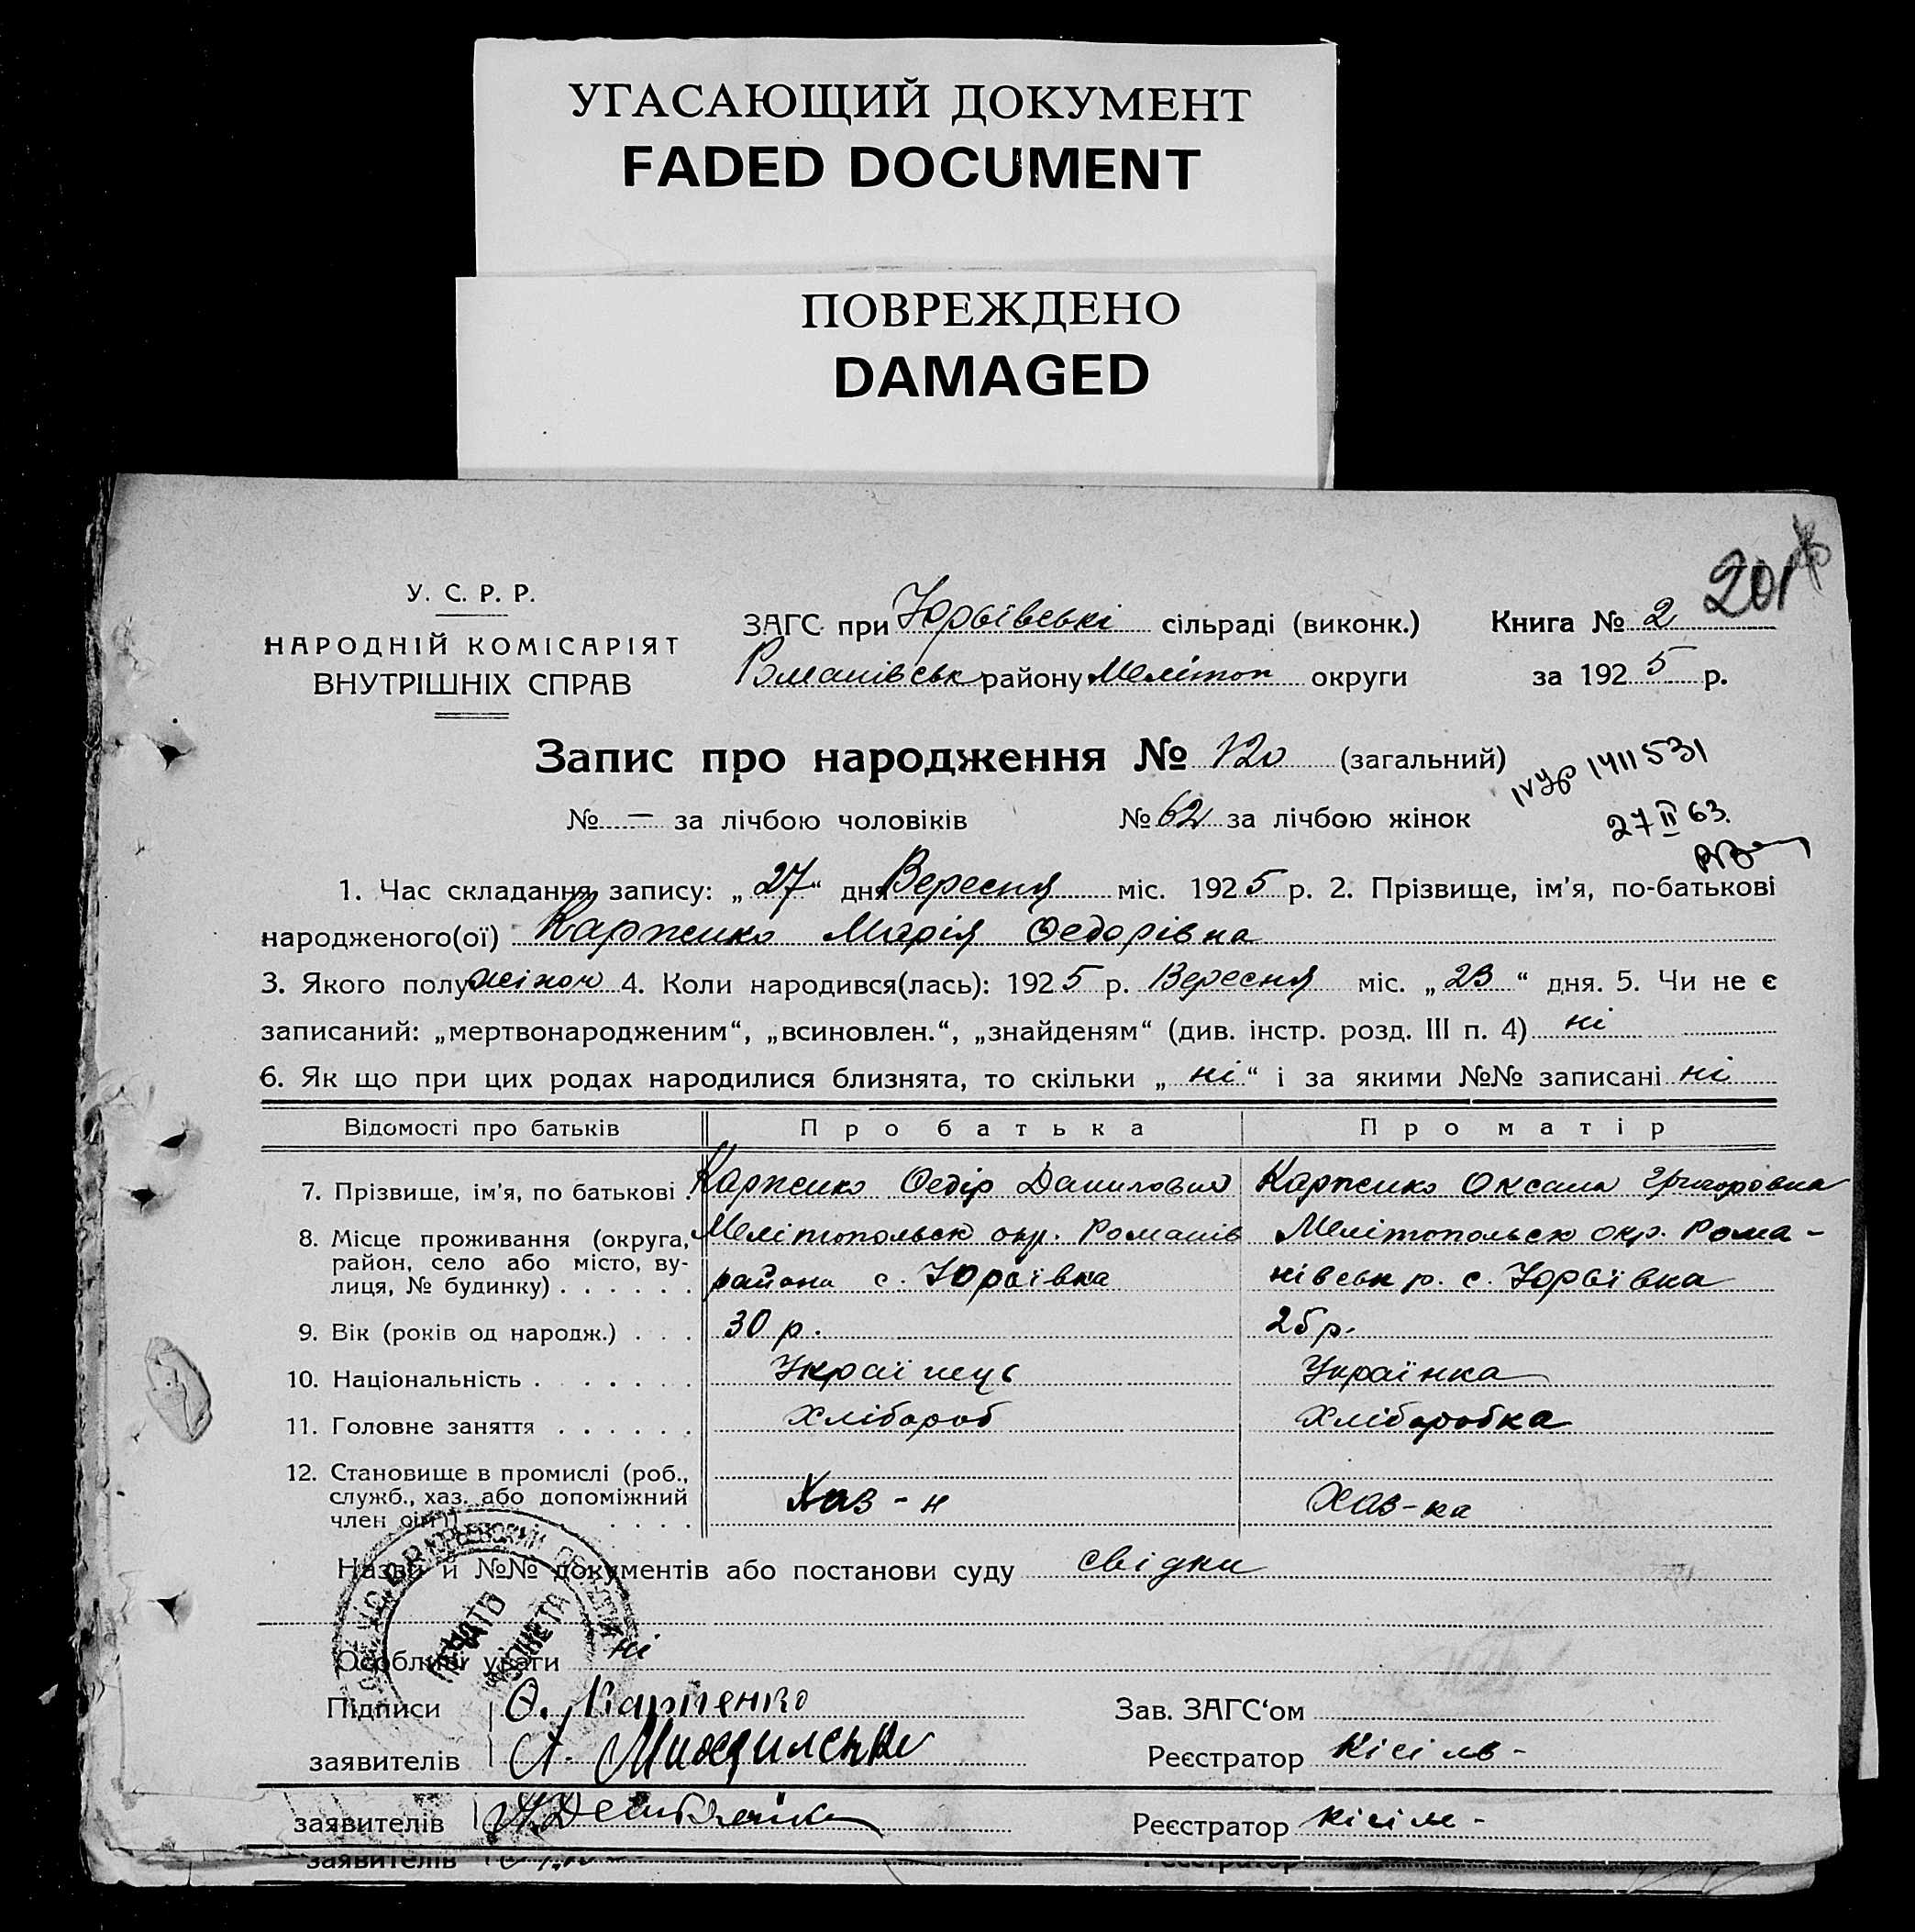 УГАСАЮЩИЙ ДОКУМЕНТ
FADED DOCUMENT
ПОВРЕЖДЕНО
DAMAGED
201
У. С. Р. Р.
НАРОДНІЙ КОМІСАРІЯТ
ВНУТРІШНІХ СПРАВ
ЗАГС при Юрьївські сільраді (виконк.) Книга № 2
району Мелітоп округи за 1925 р.
Запис про народження № 120 (загальний)
№ — за лічбою чоловіків № 62 за лічбою жінок
1411531
27 II 63.
1. Час складання запису: „27“ дня Вересня міс. 1925 р. 2. Прізвище, ім'я, по-батькові
народженого(ої) Карпенко Марія Федорівна
3. Якого полу жіноч 4. Коли народився(лась): 1925 р. Вересня міс. „23“ дня. 5. Чи не є
записаний: „мертвонародженим“, „всиновлен.“, „знайденям“ (див. інстр. розд. III п. 4) ні
6. Як що при цих родах народилися близнята, то скільки „ні“ і за якими №№ записані ні
Відомості про батьків Про батька Про матір
7. Прізвище, ім'я, по батькові Карпенко Федір Данилович Карпенко Оксана Григоровна
8. Місце проживання (округа, Мелітопольск окр. Романів Мелітопольск окр. Рома-
район, село або місто, ву-
лиця, № будинку) района с. Юрьївка нівськ р. с. Юрьївка
9. Вік (років од народж.) 30 р. 25 р.
10. Національність Українець Українка
11. Головне заняття Хлібороб Хліборобка
12. Становище в промислі (роб.,
служб., хаз. або допоміжний Хаз-н Хаз-ка
член сім'ї)
Назви й №№ документів або постанови суду свідки
Особливі уваги ні
ПЕЧАТЬ
Підписи Ф. Карпенко Зав. ЗАГС'ом
заявителів Реєстратор Кісіль-
заявителів Реєстратор
заявителів Реєстратор